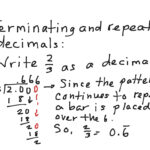 erminating and repeat
decimals:
Write 2/3 as a decima
.666
3 2.000
18
20
18
20
18
2
- Since the patter
continues to repe
a bar is placed
over the 6.
So, 2/3 = 0.6̅